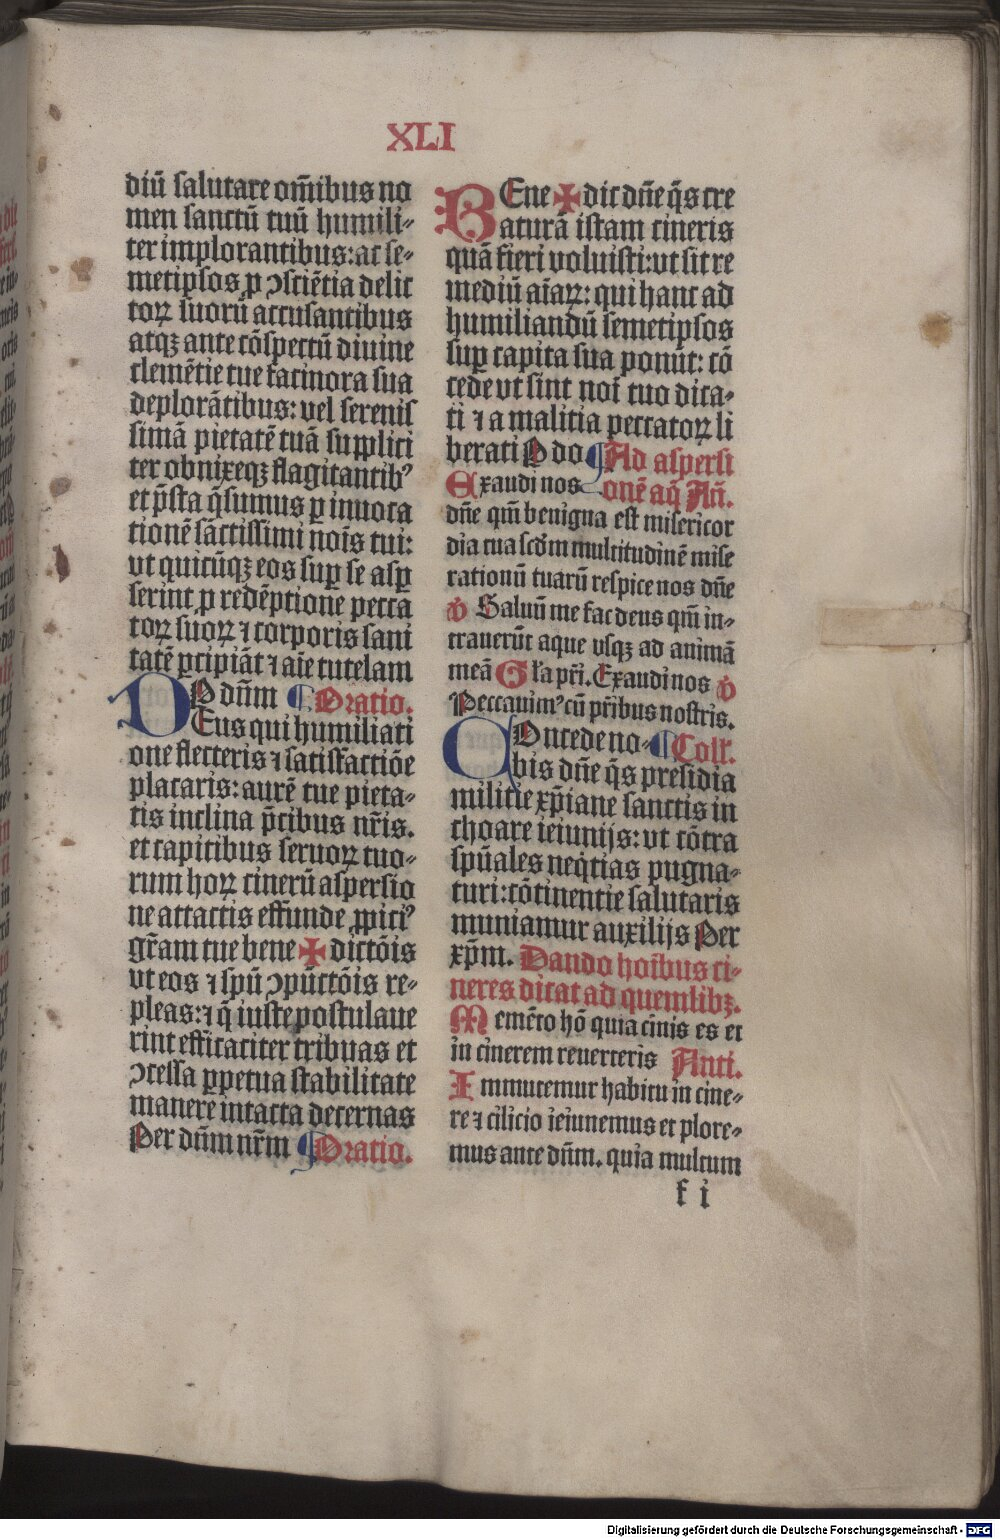 XLI
diū salutare om̄ibus no
men sanctū tuū humili⸗
ter implorantibus: ac se⸗
metipsos ꝑ ↄsciētia delic
toꝝ suorū accusantibus
atqꝫ ante cōspectū diuine
clemētie tue facinora sua
deplorātibus: vel serenis
simā pietatē tuā supplici
ter obnixeqꝫ flagitantibꝰ
et p̄sta q̄sumus ꝑ inuoca
tionē sāctissimi nois̄ tui:
vt quicūqꝫ eos suꝑ se asꝑ
serint ꝓ redēptione pecca
toꝝ suoꝝ ⁊ corporis sani
tatē ꝑcipiāt ⁊ aīe tutelam
P dūm ¶ Oratio.
DEus qui humiliati
one flecteris ⁊ satisfactiōe
placaris: aurē tue pieta⸗
tis inclina p̄cibus nr̄is.
et capitibus seruoꝝ tuo⸗
rum hoꝝ cinerū aspersio
ne attactis effunde ꝓpiciꝰ
gr̄am tue bene ✠ dictōis
vt eos ⁊ spū ↄpūctōis re⸗
pleas: ⁊ q̄ iuste postulaue
rint efficaciter tribuas et
ↄcessa ꝑpetua stabilitate
manere intacta decernas
Per dūm nr̄m ¶ Oratio.
BEne ✠ dic dn̄e q̄s cre
aturā istam cineris
quā fieri voluisti: vt sit re
mediū aīaꝝ: qui hanc ad
humiliandū semetipsos
suꝑ capita sua ponūt: cō
cede vt sint noī tuo dica⸗
ti ⁊ a malitia peccatoꝝ li
berati P do ¶ Ad aspersi
Exaudi nos onē aq̄ Añ.
dn̄e qm̄ benigna est misericor
dia tua scd̄m multitudinē mise
rationū tuarū respice nos dn̄e
v̄ Saluū me fac deus qm̄ in⸗
trauerūt aque vsqꝫ ad animā
meā Gl̄a pr̄i. Exaudi nos v̄
Peccauimꝰ cū pr̄ibus nostris.
COncede no⸗ ¶ Coll̄.
bis dn̄e q̄s presidia
militie xp̄iane sanctis in
choare ieiunijs: vt cōtra
spūales neq̄tias pugna⸗
turi: cōtinentie salutaris
muniamur auxilijs Per
xp̄m. Dando hoībus ci⸗
neres dicat ad quemlibꝫ.
Memēto hō quia cinis es et
in cinerem reuerteris Anti.
Immutemur habitu in cine⸗
re ⁊ cilicio ieiunemus et plore⸗
mus ante dūm. quia multum
f i
Digitalisierung gefördert durch die Deutsche Forschungsgemeinschaft - DFG